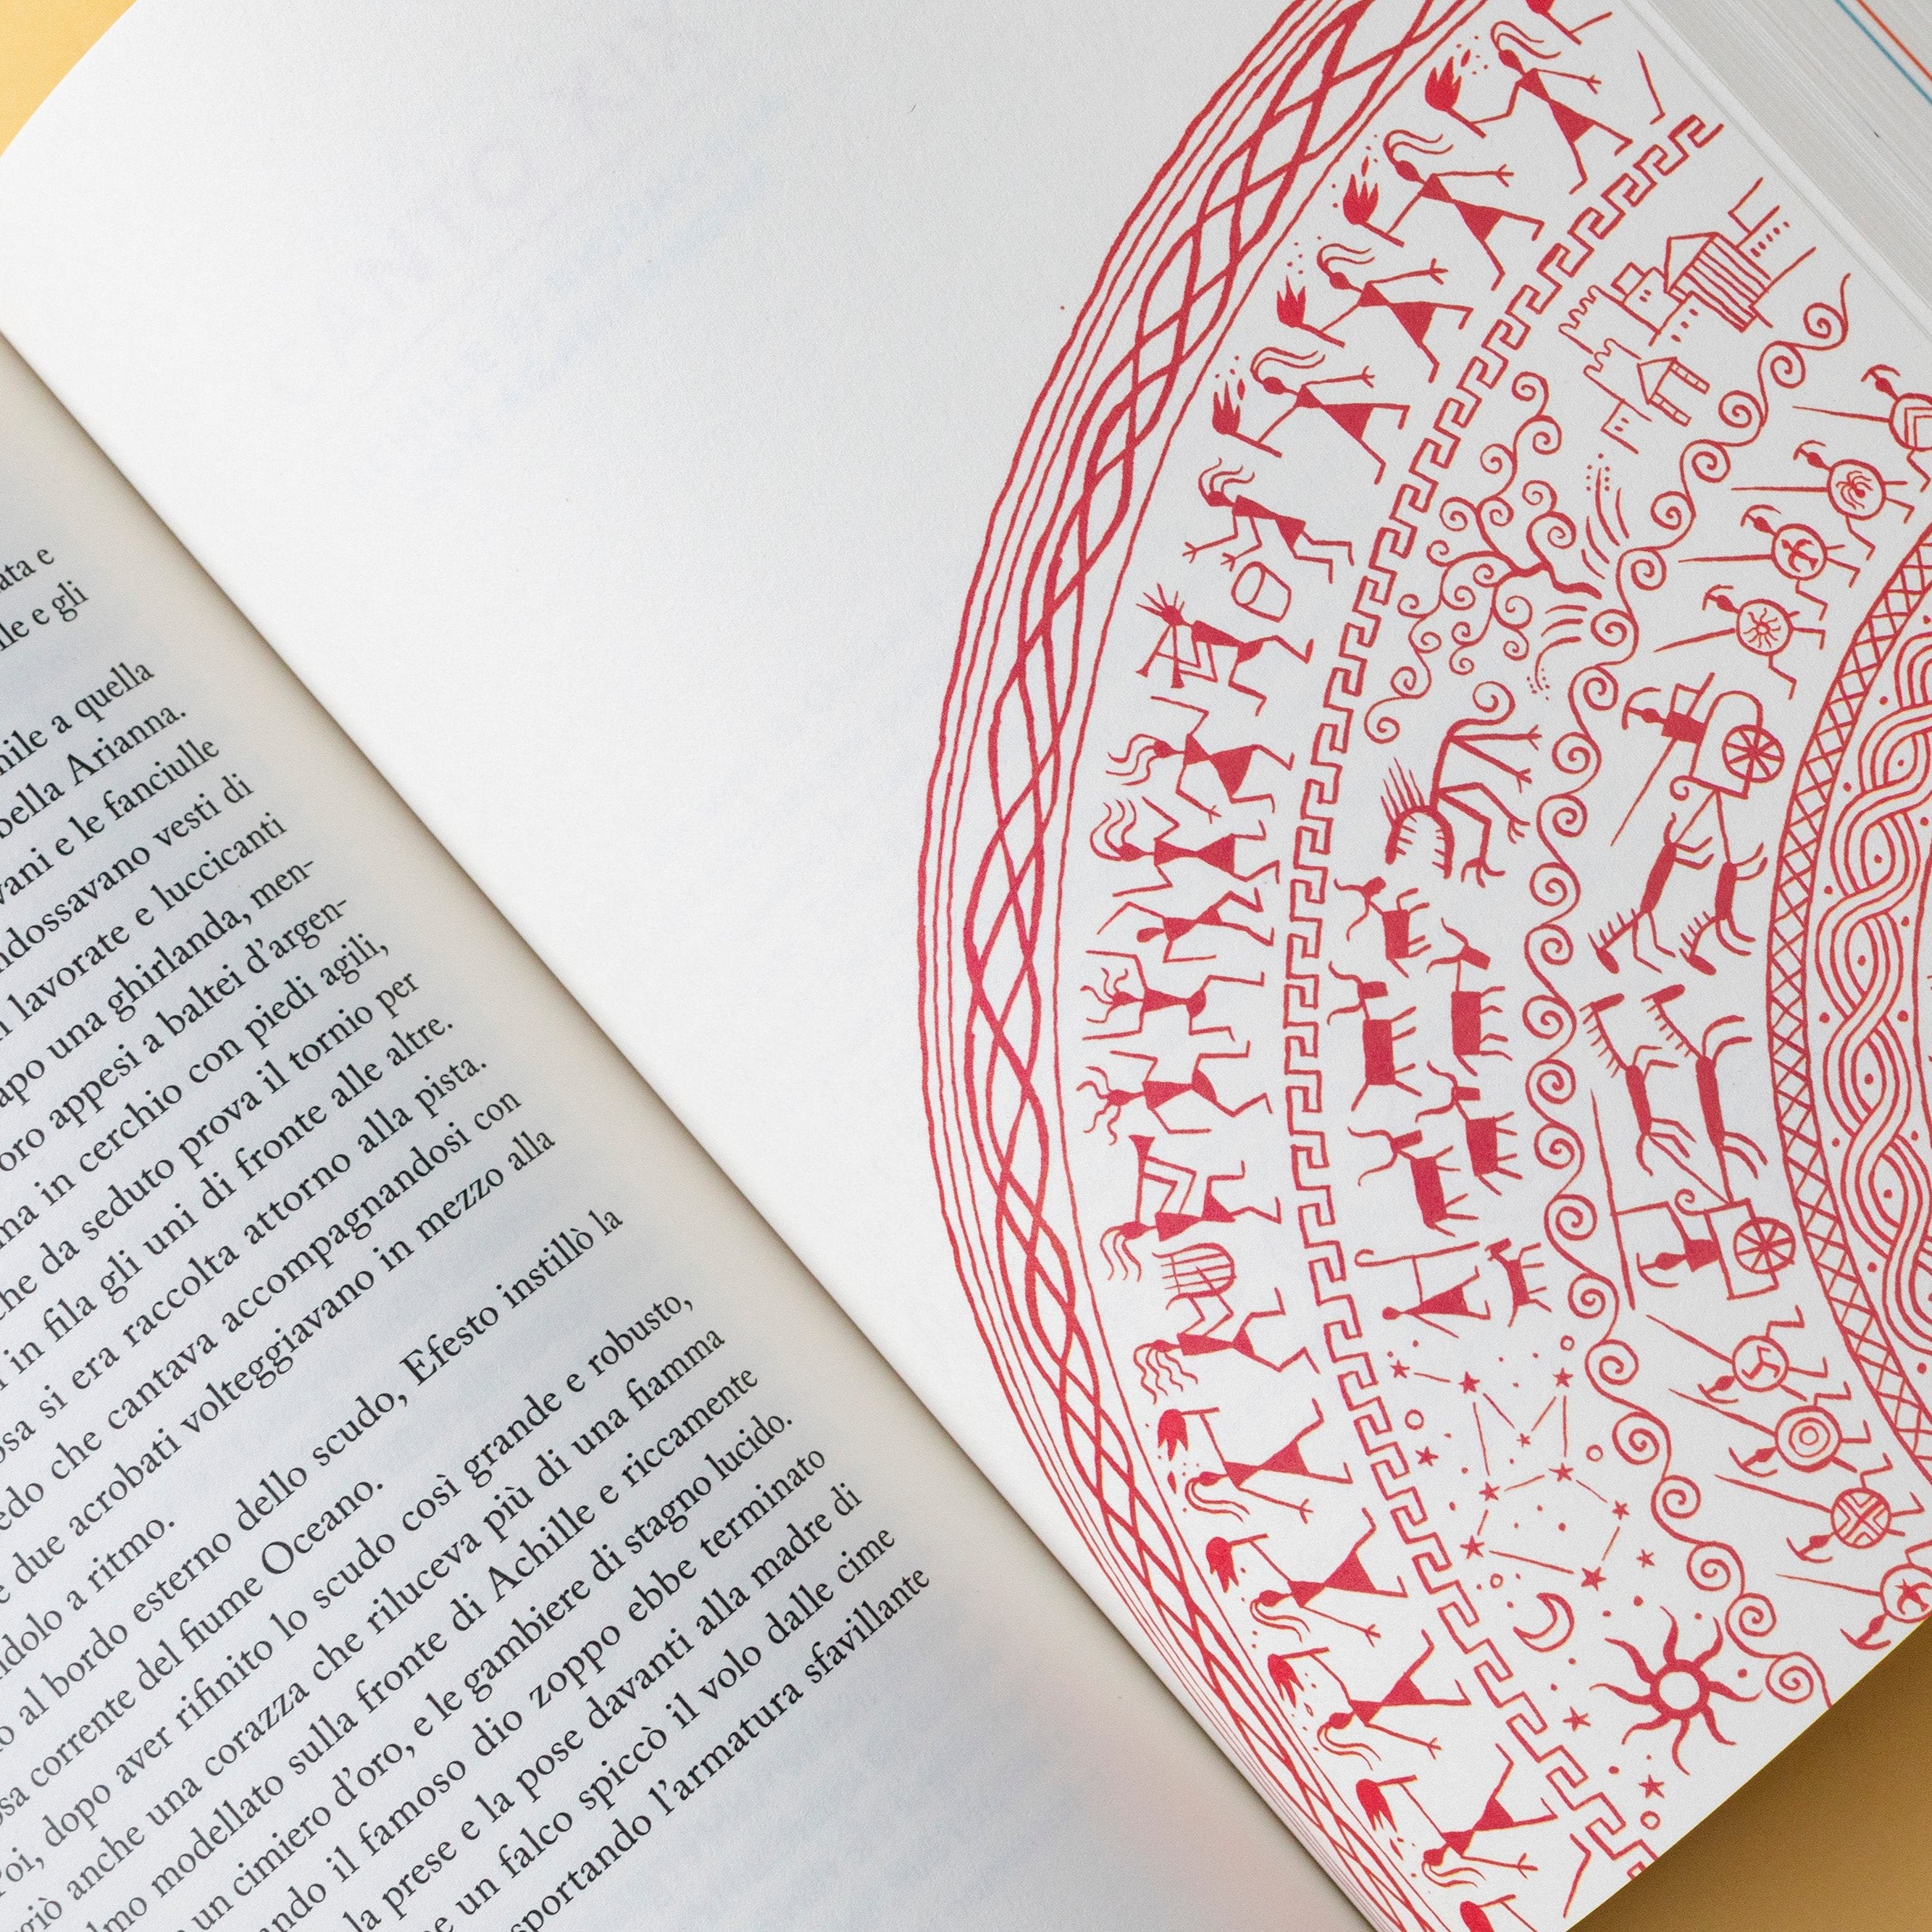 e gli
a quella
bella Arianna.
e le fanciulle
vesti di
lavorate e luccicanti
una ghirlanda, men-
oro appesi a baltei d'argen-
in cerchio con piedi agili,
che da seduto prova il tornio per
in fila gli uni di fronte alle altre.
si era raccolta attorno alla pista.
che cantava accompagnandosi con
due acrobati volteggiavano in mezzo alla
a ritmo.
al bordo esterno dello scudo, Efesto instillò la
corrente del fiume Oceano.
dopo aver rifinito lo scudo così grande e robusto,
anche una corazza che riluceva più di una fiamma
modellato sulla fronte di Achille e riccamente
un cimiero d'oro, e le gambiere di stagno lucido.
il famoso dio zoppo ebbe terminato
la prese e la pose davanti alla madre di
un falco spiccò il volo dalle cime
l'armatura sfavillante